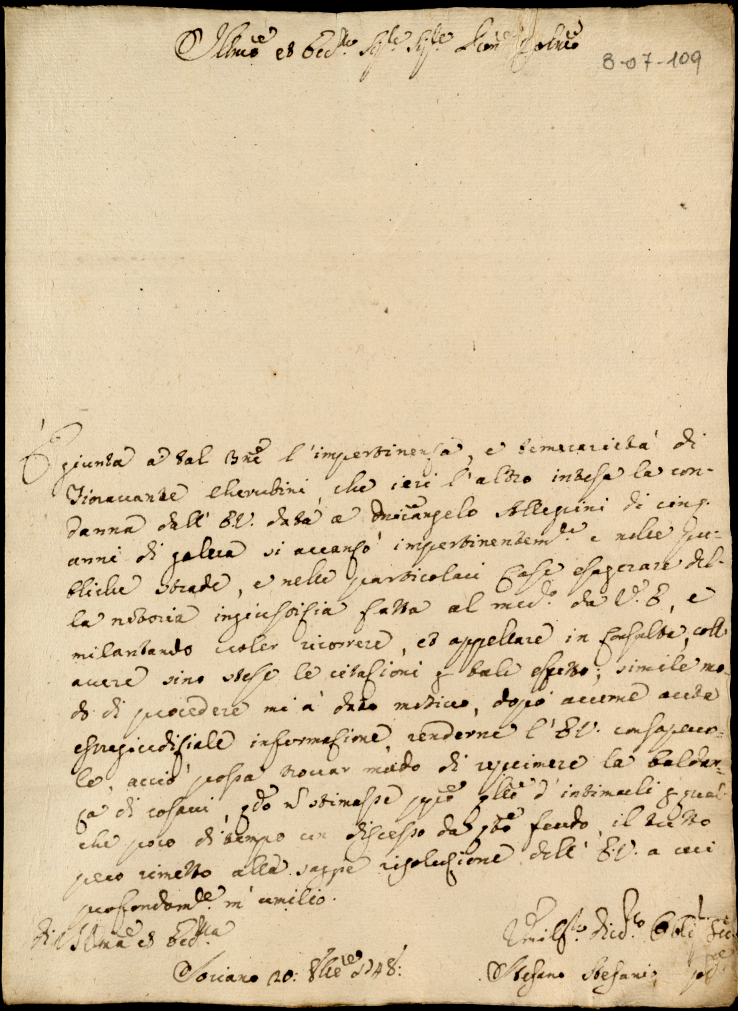 Illmo et Ecc.mo Sig.re Sig.re Pron. Colmo
8-07-109
È giunta a tal sne l'impertinenza, e temerarietà di
Fioravante Cherubini, che ieri l'altro intesa la con-
danna dell' E.V. data a Dnicangelo Allegrini di cinq.
anni di galera si avanzò impertinentem.te e nelle pu-
bliche strade, e nelle particolari Case esagerare del-
la notoria ingiustizia fatta al med.o da V.E., e
milantando voler ricorrere, et appellare in Consulta, coll'
avere sino stese le citazioni p tale effetto; simile mo-
do di procedere mi à dato motivo, dopo averne avuta
estragiudiziale informazione, renderne l'E.V. consapevo-
le, acciò possa trovar modo di reprimere la baldan-
za di costui, qdo n stimasse d'intimarli p qual-
che poco di tempo un discesso da qto feudo, il tutto
però rimetto alla saggie risoluzione dell' E.V. a cui
profondam.te m'umilio.
di V.S. Illma et Ecc.ma
Soriano 20: 8bre 1748:
Umil.mo Div.mo Obl.
Stefano Stefani